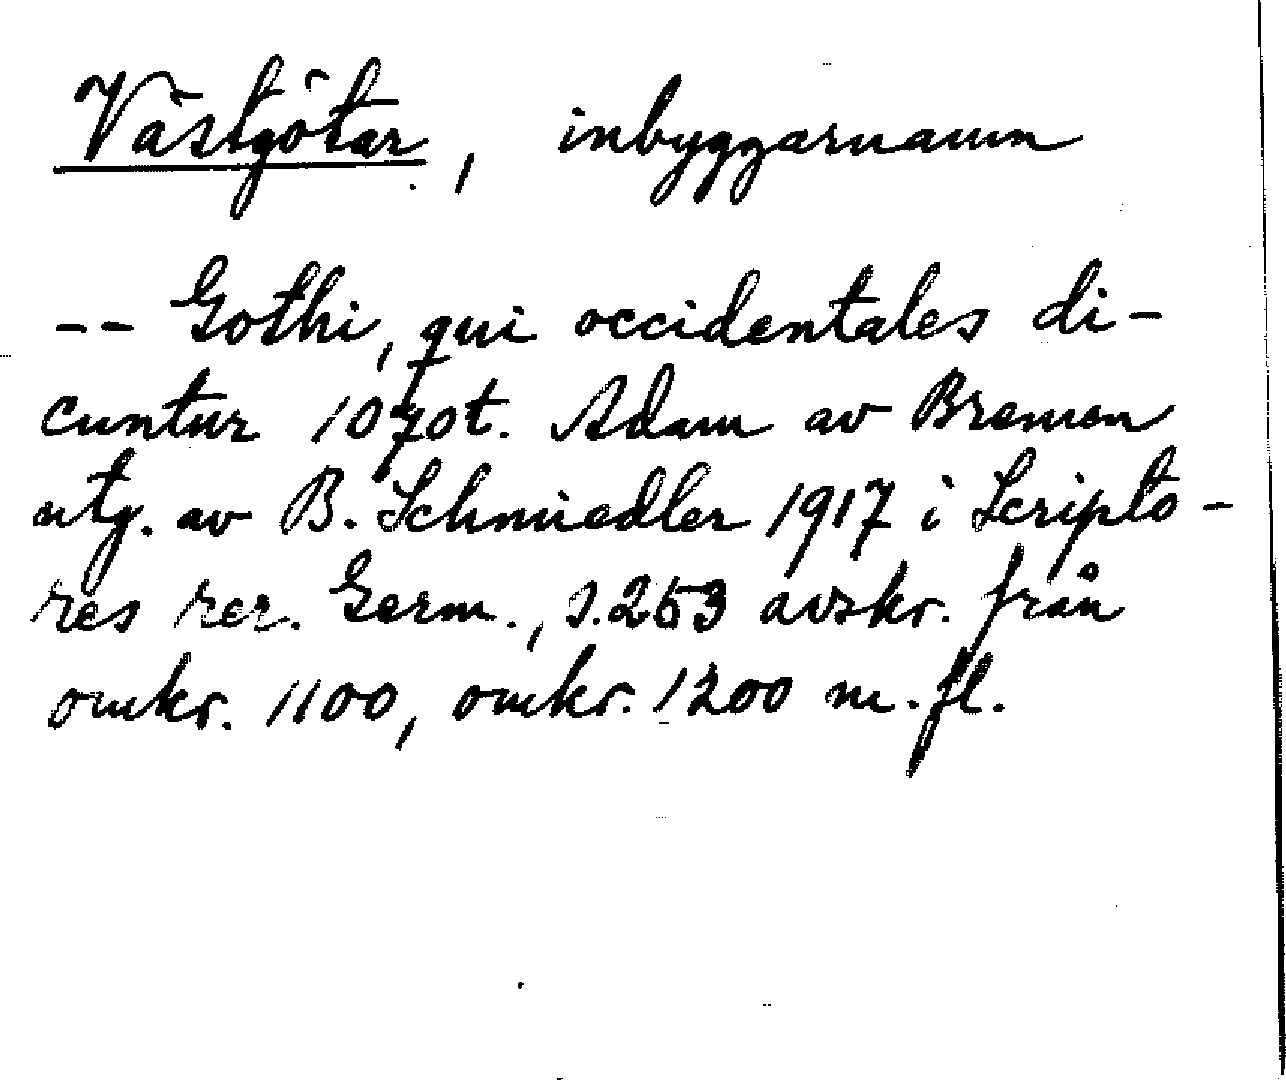 Västgötar, inbyggarnamn
-- Gothi, qui occidentales di-
cuntur 1070t. Adam av Bremen
utg. av B. Schmiedler 1917 i Scripto-
res rer. Germ., s. 253 avskr. från
omkr. 1100, omkr. 1200 m. fl.